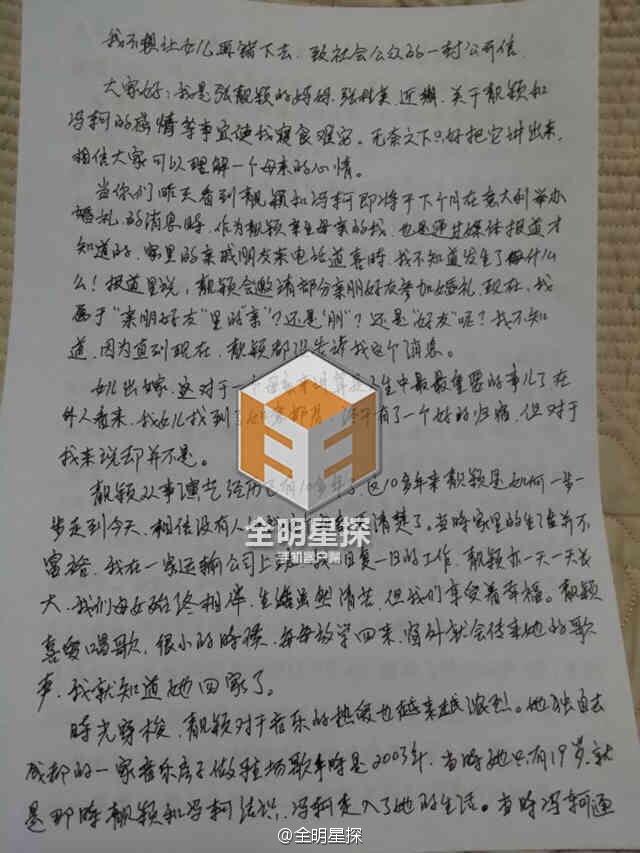 我不想让女儿再错下去,致社会公众的一封公开信
大家好:我是张靓颖的妈妈,张桂英,近期,关于靓颖和
冯轲的婚情等事宜使我寝食难安。无奈之下只好把它讲出来,
相信大家可以理解一个母亲的心情。
当你们昨天看到靓颖和冯轲即将于下个月在意大利举办
婚礼的消息时,作为靓颖亲生母亲的我,也是通过媒体报道才
知道的,家里的亲戚朋友来电话道喜时,我不知道发生了什么
么!报道里说,靓颖会邀请部分亲朋好友参加婚礼,现在,我
属于“亲朋好友”里的“亲”?还是“朋”?还是“好友”呢?我不知
道,因为直到现在,靓颖都没告诉我这个消息。
女儿出嫁,这对于一个母亲来说算是一生中最最重要的事儿了在
外人看来,我女儿找到了 终于有了一个好的归宿,但对于
我来说却并不是。
靓颖从事演艺经历已有10多年了,这10多年来靓颖是如何一步一
步走到今天,相信没有人 清楚了。当时家里的生活并不
富裕,我在一家运输公司上班 日复一日的工作,靓颖亦一天一天长
大,我们母女始终相伴,生活虽然清苦,但我们享受着幸福。靓颖
喜爱唱歌,很小的时候,每每放学回来,窗外就会传来她的歌
声,我就知道她回家了。
时光穿梭,靓颖对于音乐的热爱也越来越浓烈。她独自去
成都的一家音乐房子做驻场歌手时是2003年,当时她只有19岁,就
是那时靓颖和冯轲结识,冯轲走入了她的生活。当时冯轲通
全明星探
手机客户端
@全明星探